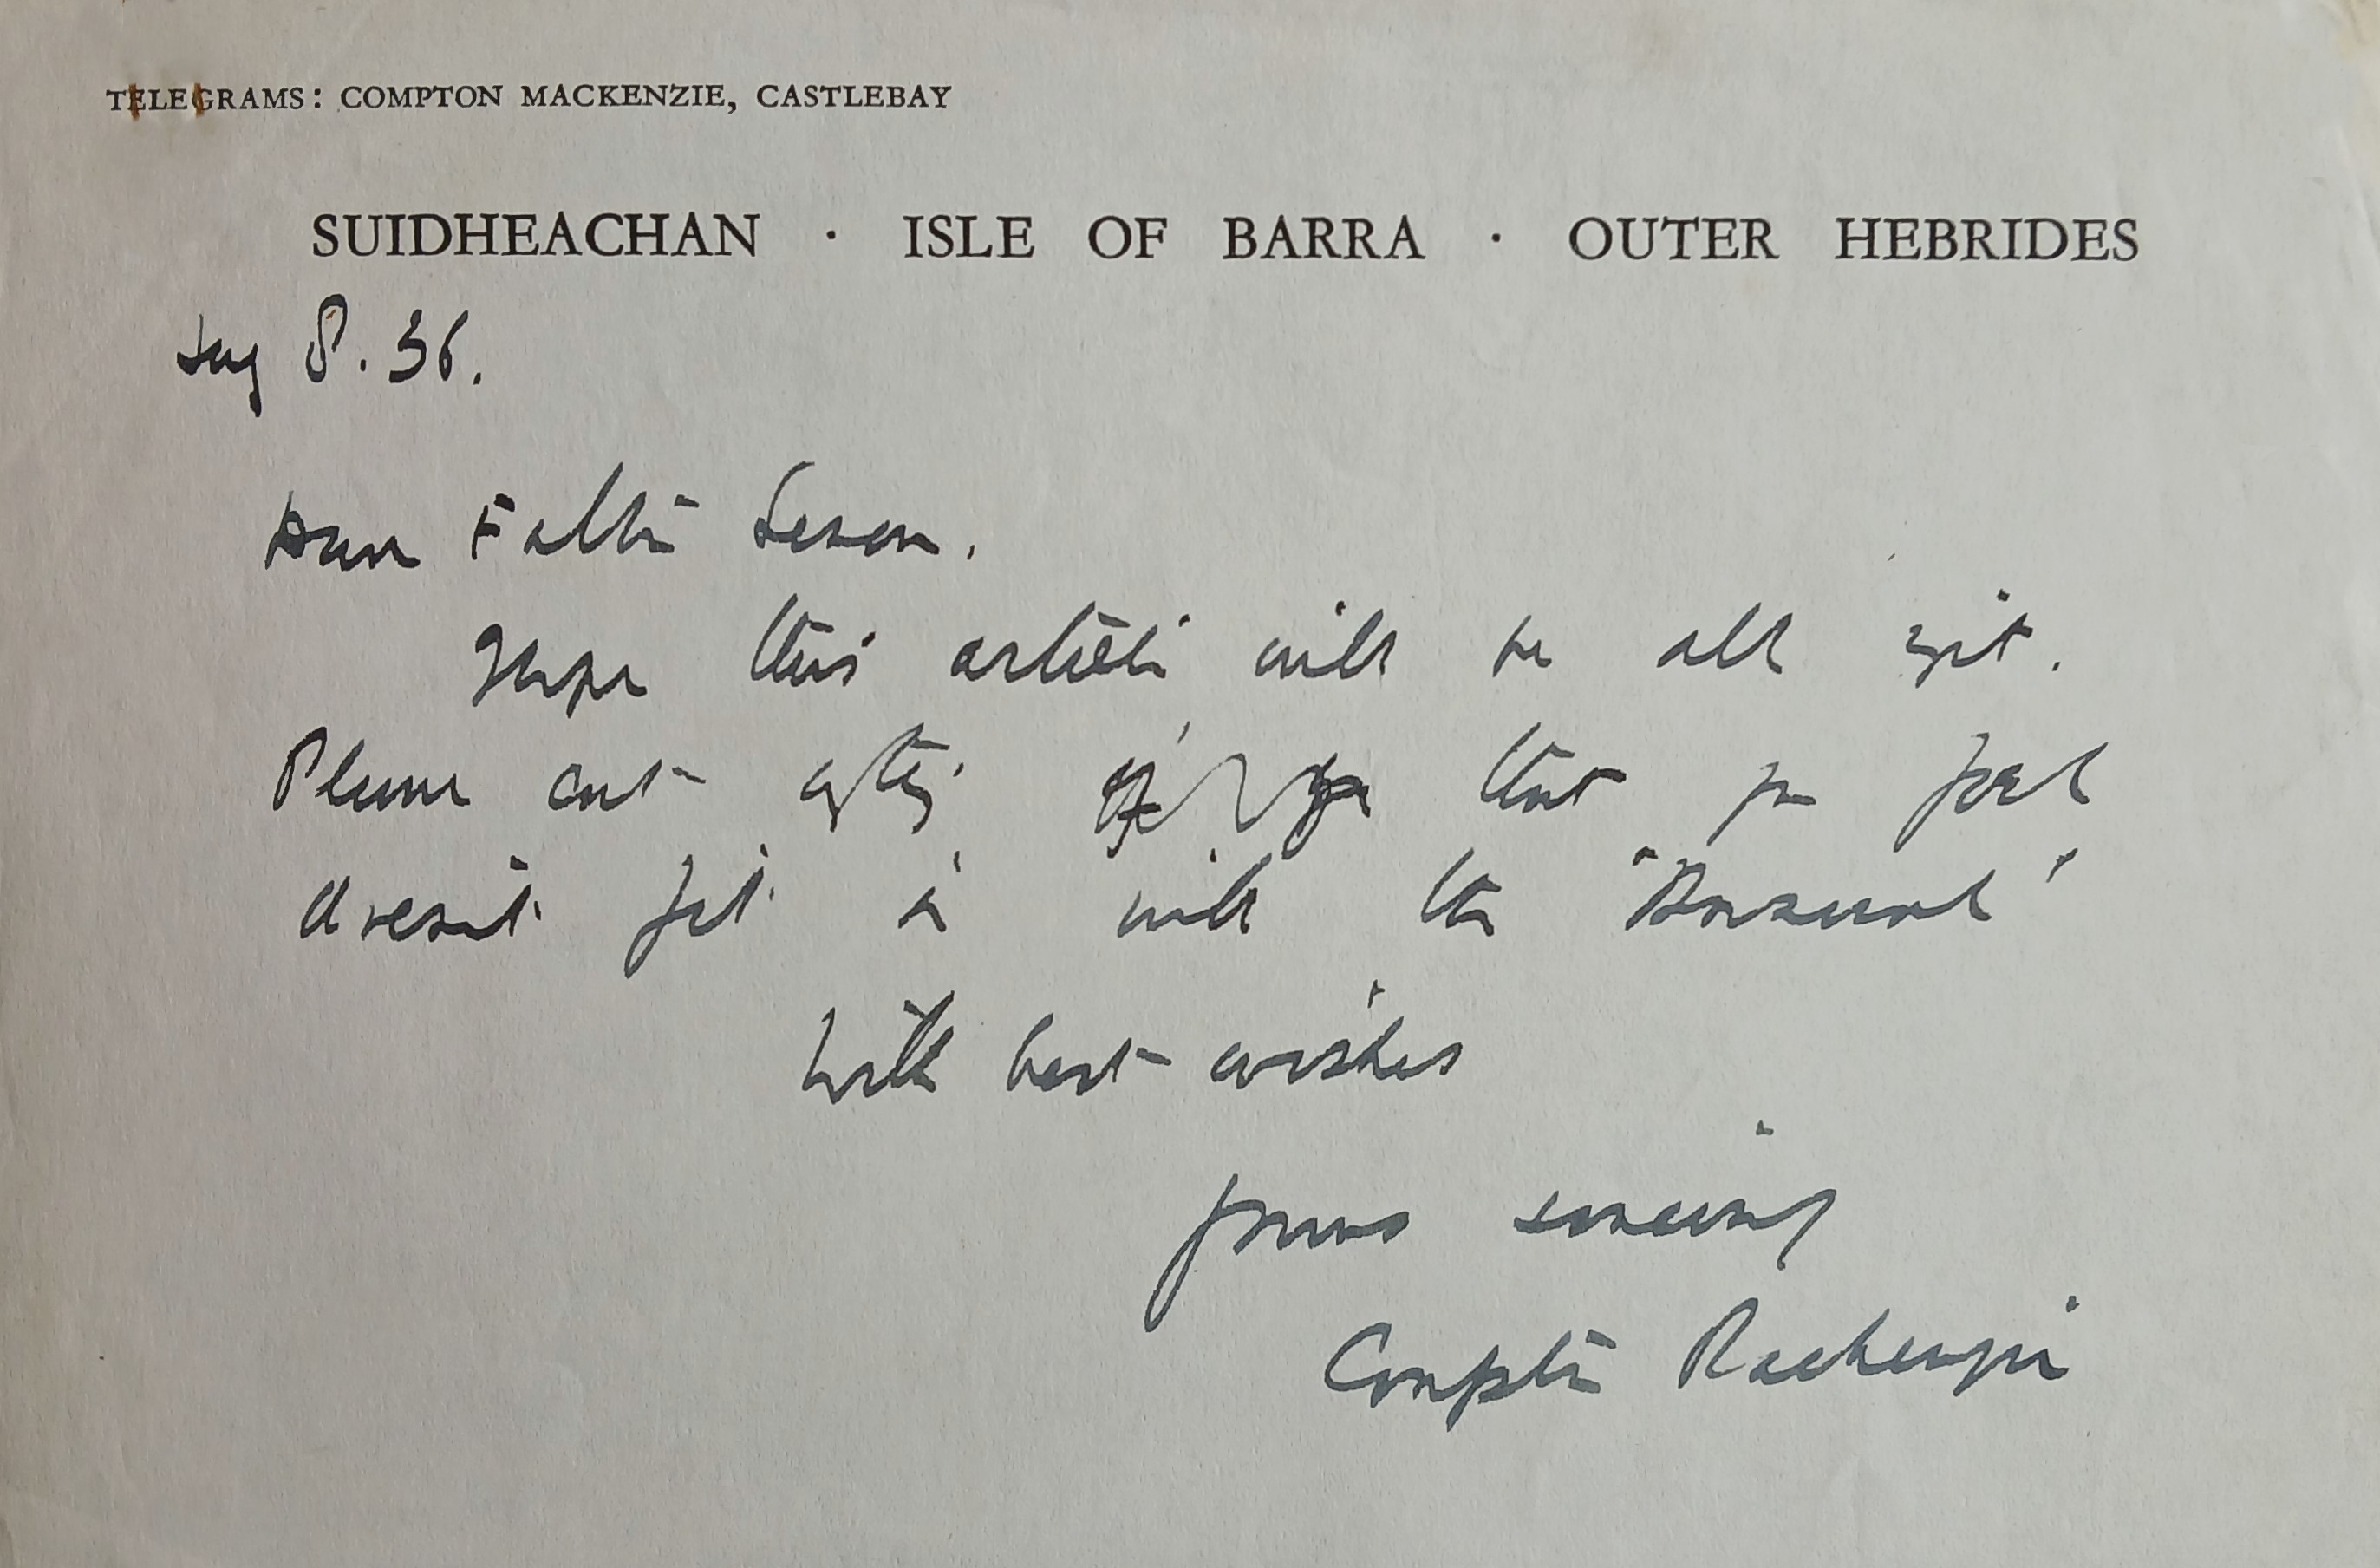 TELEGRAMS: COMPTON MACKENZIE, CASTLEBAY
SUIDHEACHAN · ISLE OF BARRA · OUTER HEBRIDES
8.36.
Dear
I hope this article will be all right.
Please cut anything that you feel
doesn't fit in with the
With best wishes
yours sincerely
Compton Mackenzie